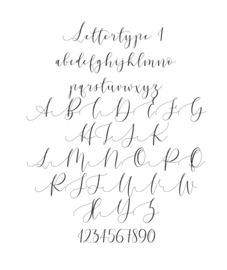 Lettertype 1
abcdefghijklmno
pqrstuvwxyz
A B C D E F G
H I J K
L M N O P Q
R S T U V W
X Y Z
1234567890